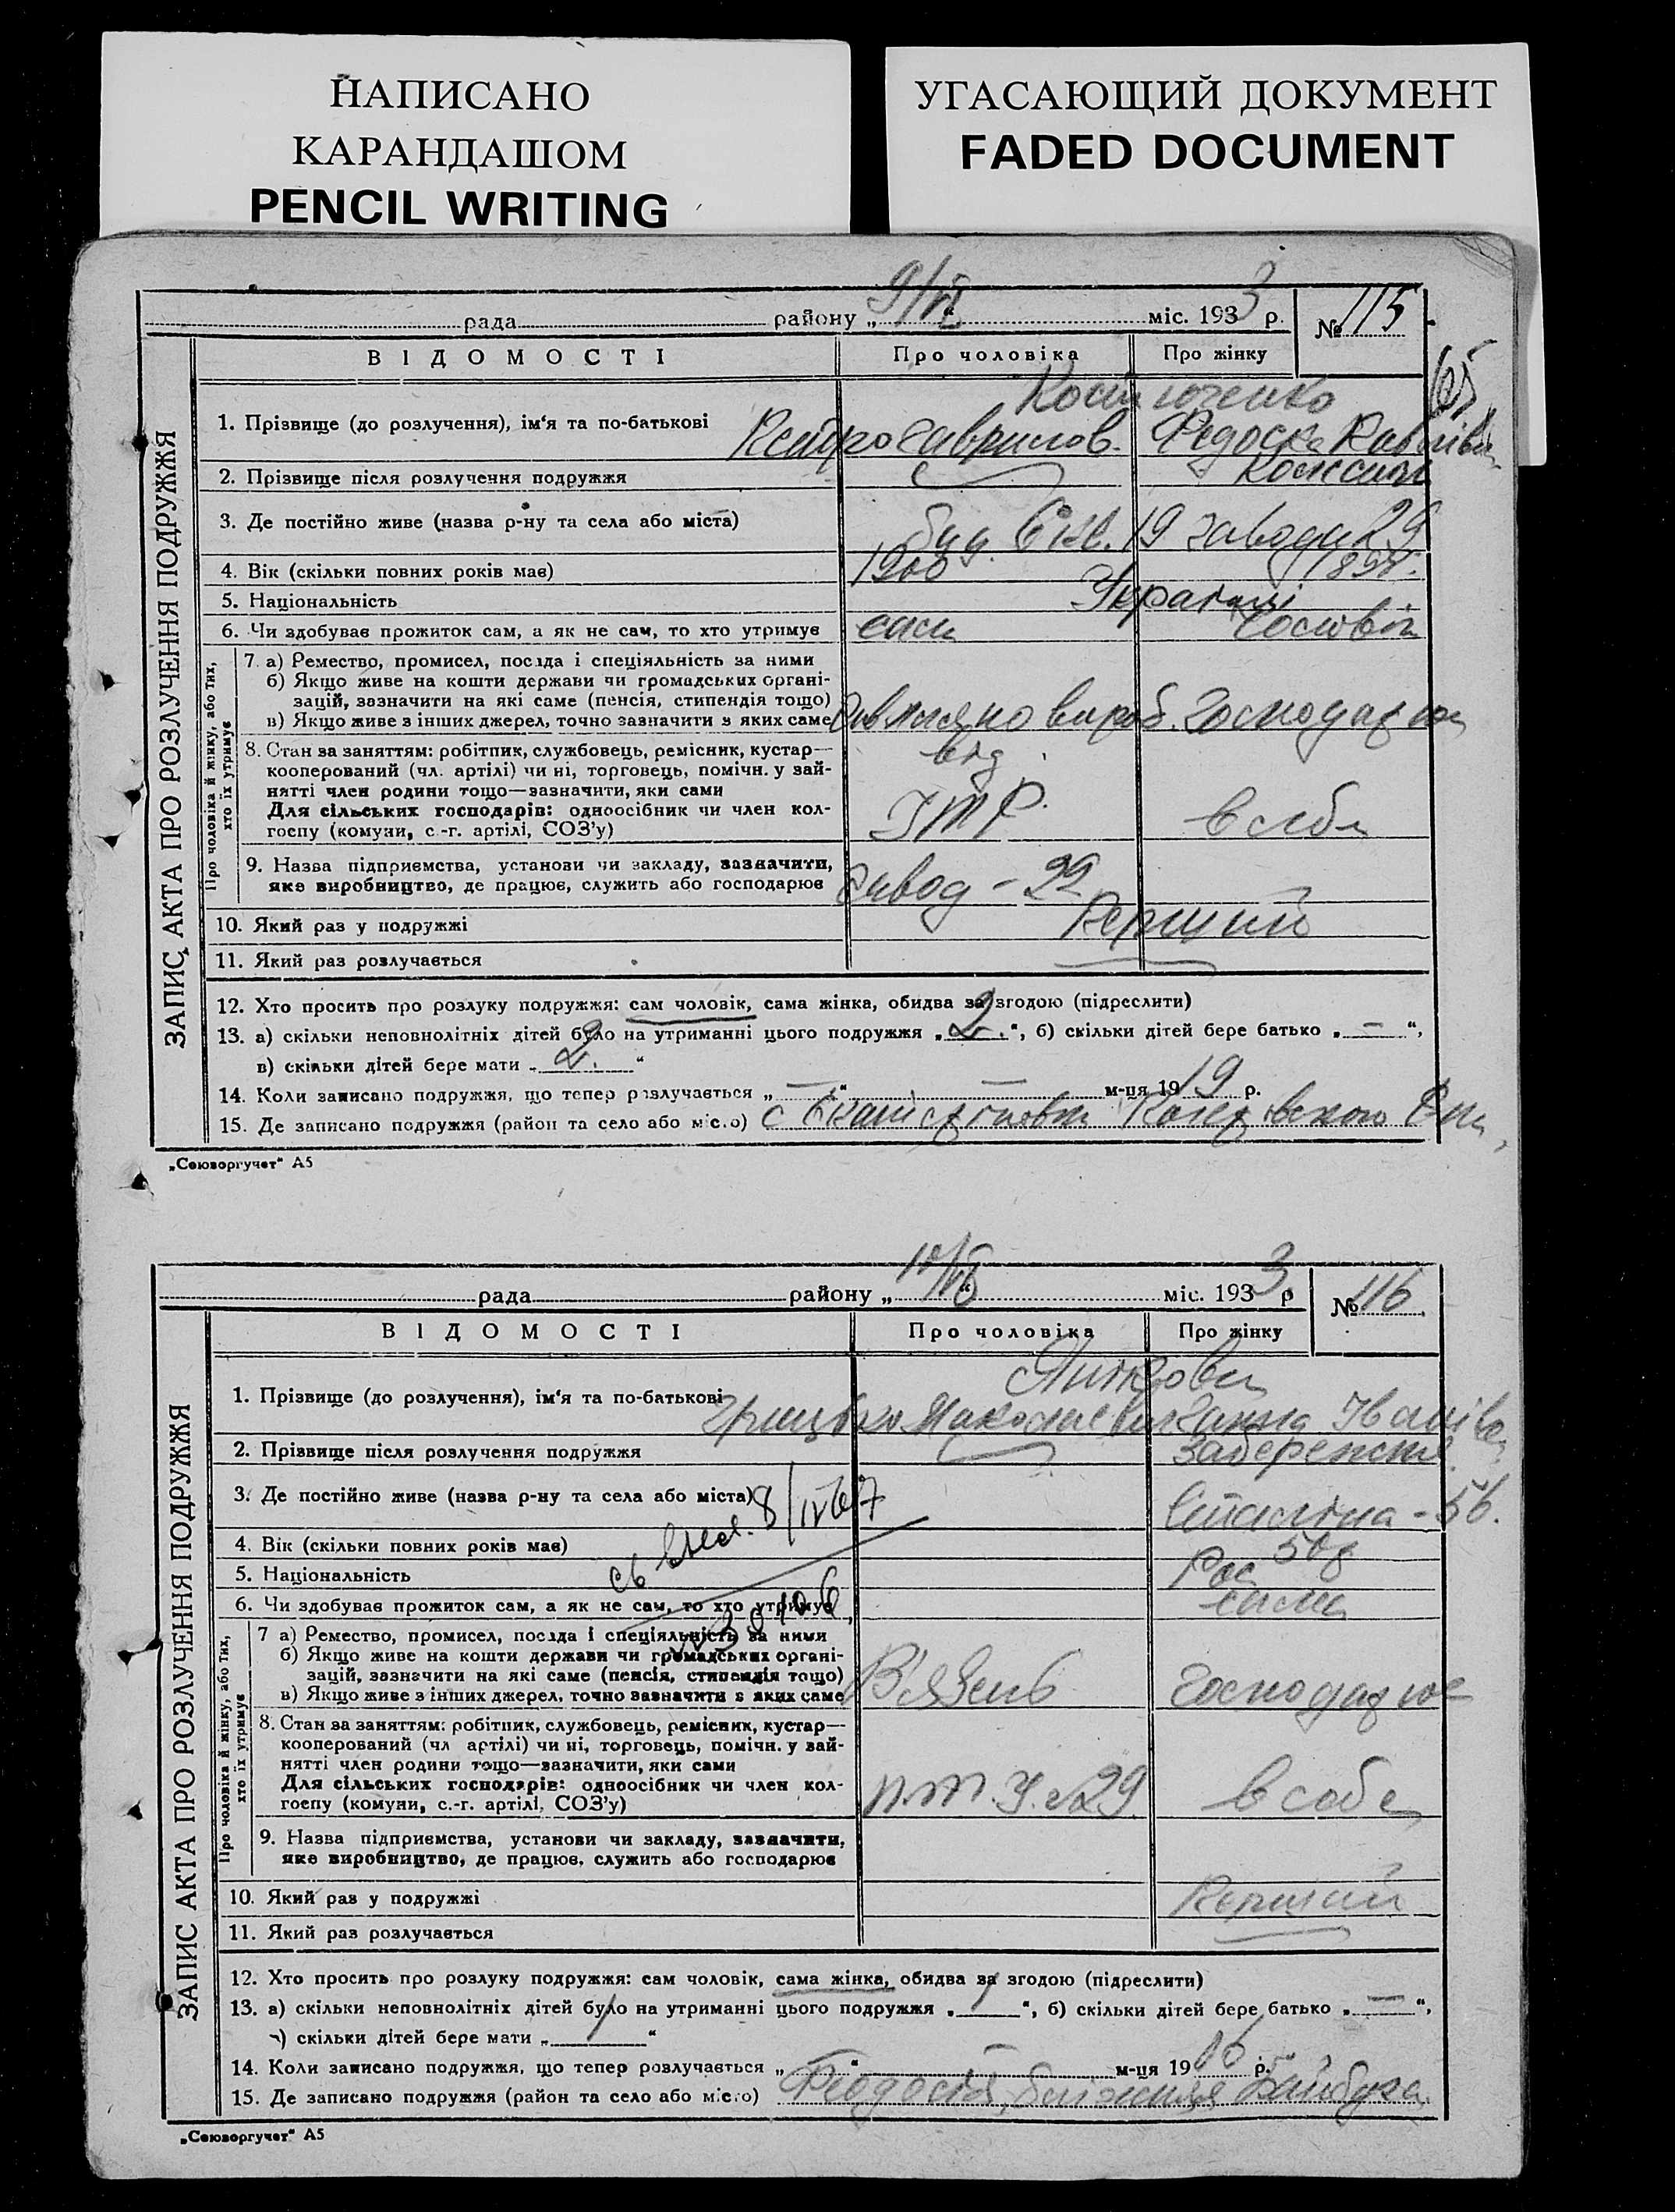 НАПИСАНО
КАРАНДАШОМ
PENCIL WRITING
УГАСАЮЩИЙ ДОКУМЕНТ
FADED DOCUMENT
рада районy „ 9/VI “ міс. 1933 р. № 115
65
ВІДОМОСТІ Про чоловіка Про жінку
ЗАПИС АКТА ПРО РОЗЛУЧЕННЯ ПОДРУЖЖЯ
Костюченко
1. Прізвище (до розлучення), ім‘я та по-батькові Петро Гаврилов. Федоска Павлівна
2. Прізвище після розлучення подружжя
3. Де постійно живе (назва р-ну та села або міста) буд. 6 кв. 19 заводу 29
4. Вік (скільки повних років має) 1900
5. Національність Українці
6. Чи здобуває прожиток сам, а як не сам, то хто утримує сам чоловік
Про чоловіка й жінку, або тих, хто їх утримує
7. а) Ремество, промисел, посада і спеціяльність за ними
б) Якщо живе на кошти держави чи громадських органі-
зацій, зазначити на які саме (пенсія, стипендія тощо)
в) Якщо живе з інших джерел, точно зазначити з яких саме вироб. господарює
від
8. Стан за заняттям: робітник, службовець, ремісник, кустар—
кооперований (чл. артілі) чи ні, торговець, помічн. у зай-
нятті член родини тощо—зазначити, яки сами
Для сільських господарів: одноосібник чи член кол-
госпу (комуни, с.-г. артілі, СОЗ’у) ІТР. в себе
9. Назва підприємства, установи чи закладу, зазначити,
яке виробництво, де працює, служить або господарює завод - 29
10. Який раз у подружжі Перший
11. Який раз розлучається
12. Хто просить про розлуку подружжя: сам чоловік, сама жінка, обидва за згодою (підреслити)
13. а) скільки неповнолітніх дітей було на утриманні цього подружжя „ 2. “, б) скільки дітей бере батько „ — “,
в) скільки дітей бере мати „ 2. “
14. Коли записано подружжя, що тепер розлучається „ — “ — м-ця 1919 р.
15. Де записано подружжя (район та село або місто) с
„Союзоргучет“ А5
рада району „ 10/VI “ міс. 1933 р № 116
ВІДОМОСТІ Про чоловіка Про жінку
ЗАПИС АКТА ПРО РОЗЛУЧЕННЯ ПОДРУЖЖЯ
1. Прізвище (до розлучення), ім‘я та по-батькові Грицько Миколаєвич Ганна Іванівна
2. Прізвище після розлучення подружжя
3. Де постійно живе (назва р-ну та села або міста) Сталіна - 56.
8/IV 67
4. Вік (скільки повних років має) 50
5. Національність Рос
6. Чи здобуває прожиток сам, а як не сам, то хто утримує сама
Про чоловіка й жінку, або тих, хто їх утримує
7 а) Ремество, промисел, посада і спеціяльність за ними
б) Якщо живе на кошти держави чи громадських органі-
зацій, зазначити на які саме (пенсія, стипендія тощо)
в) Якщо живе з інших джерел, точно зазначити з яких саме В'язень господарює
8. Стан за заняттям: робітник, службовець, ремісник, кустар—
кооперований (чл артілі) чи ні, торговець, помічн. у зай-
нятті член родини тощо—зазначити, яки сами
Для сільських господарів: одноосібник чи член кол-
госпу (комуни, с.-г. артілі, СОЗ’у) в себе
9. Назва підприємства, установи чи закладу, зазначити,
яке виробництво, де працює, служить або господарює
10. Який раз у подружжі Перший
11. Який раз розлучається
12. Хто просить про розлуку подружжя: сам чоловік, сама жінка, обидва за згодою (підреслити)
13. а) скільки неповнолітніх дітей було на утриманні цього подружжя „ 1 “, б) скільки дітей бере батько „ — “,
в) скільки дітей бере мати „ 1 “
14. Коли записано подружжя, що тепер розлучається „ — “ — м-ця 1916 р.
15. Де записано подружжя (район та село або місто) Феодосія,
„Союзоргучет“ А5